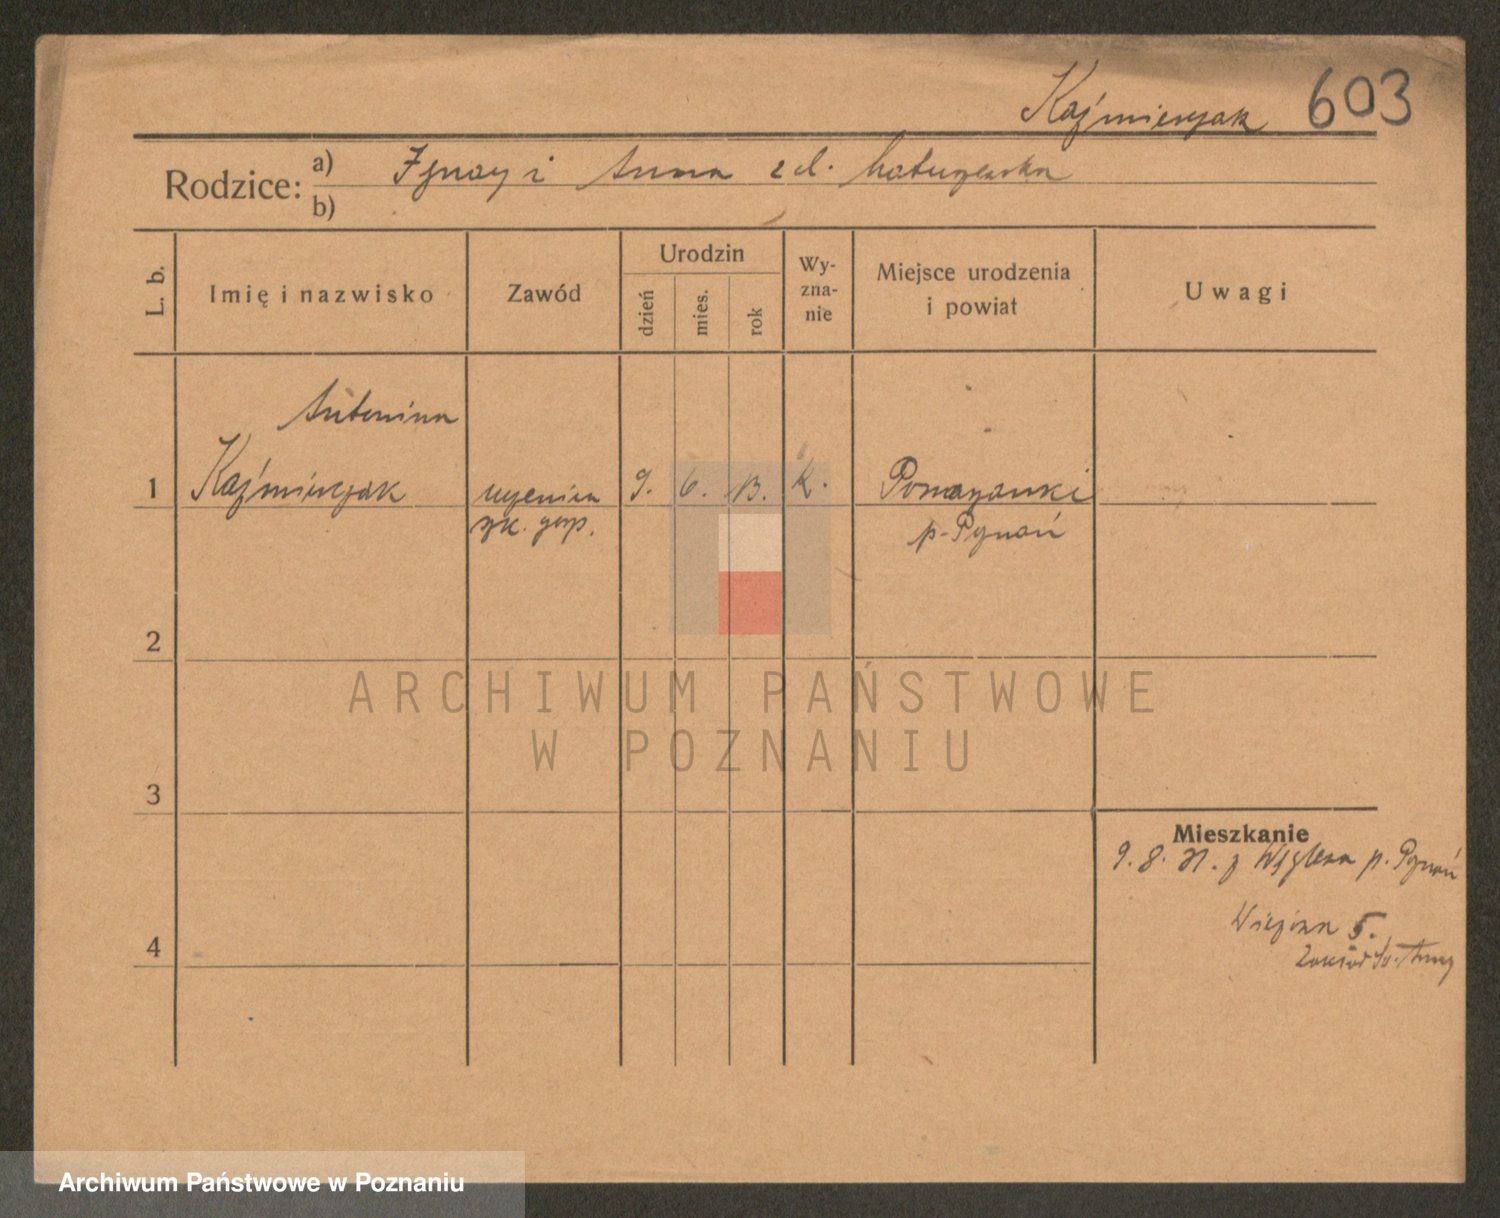 Kaźmierczak 603
Rodzice: a) Ignacy i Anna z d.
b)
L. b.
Imię i nazwisko
Zawód
Urodzin
dzień
mies.
rok
Wy-
zna-
nie
Miejsce urodzenia
i powiat
Uwagi
Antonina
1 Kaźmierczak uczenica 9. 6. 13. K.
p. Poznań
2
3
4
Mieszkanie
9. 8. 31. z p. Poznań
5.
ARCHIWUM PAŃSTWOWE
W POZNANIU
Archiwum Państwowe w Poznaniu